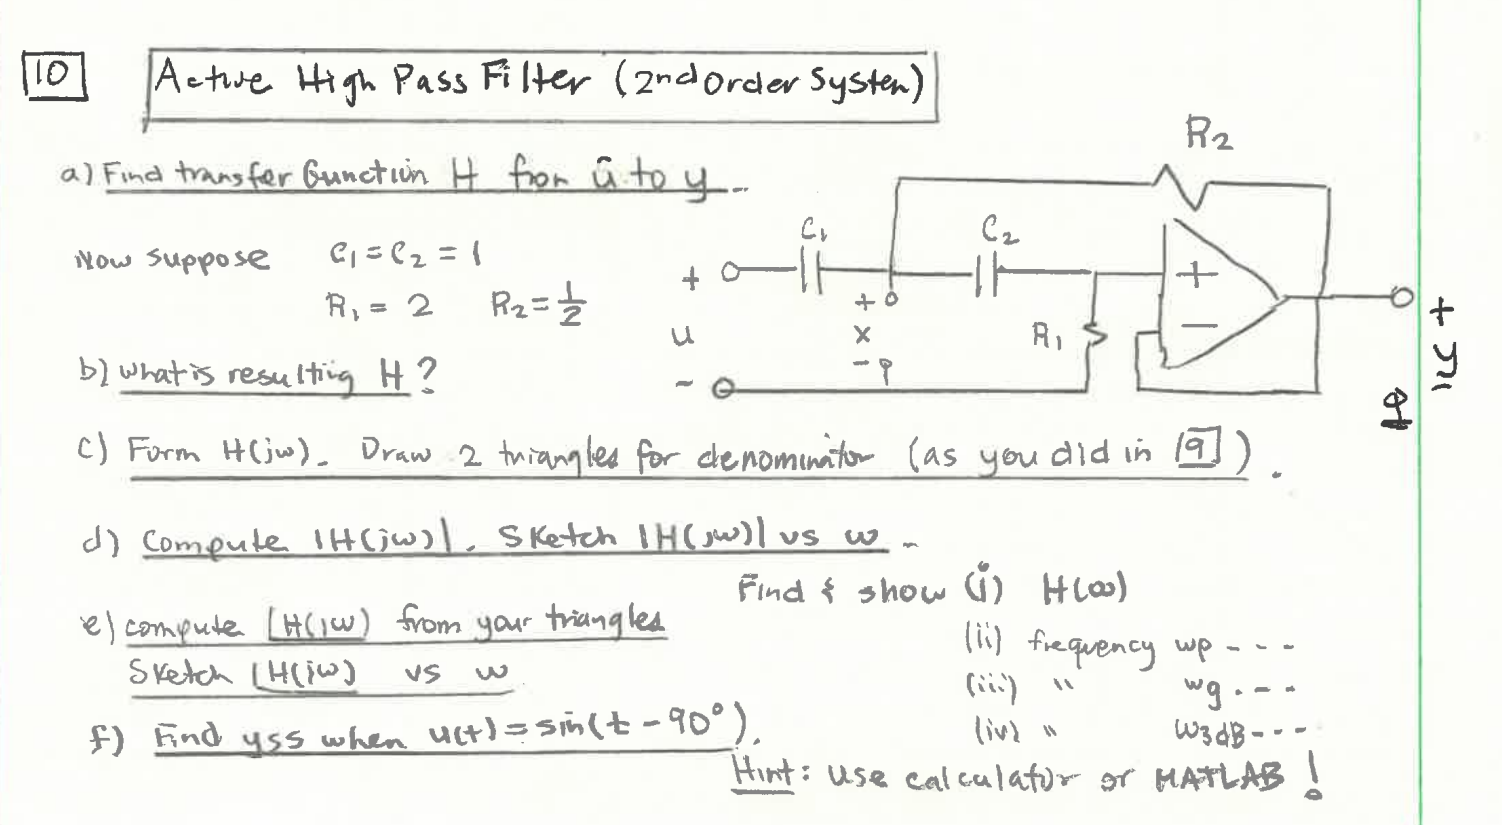 10 Active High Pass Filter (2nd Order System)
R2
a) Find transfer function H from u to y
Now suppose C1 = C2 = 1
R1 = 2 R2 = 1/2
C1 C2
+ + +
u x R1 − + y
- - -
b) what is resulting H?
c) Form H(jw). Draw 2 triangles for denominator (as you did in 9).
d) Compute |H(jw)|. Sketch |H(jw)| vs w
Find & show (i) H(∞)
(ii) frequency wp - - -
(iii) " wg . - -
(iv) " w3dB - - -
e) compute ∠H(jw) from your triangles
Sketch ∠H(jw) vs w
f) Find yss when u(t) = sin(t - 90°).
Hint: use calculator or MATLAB !